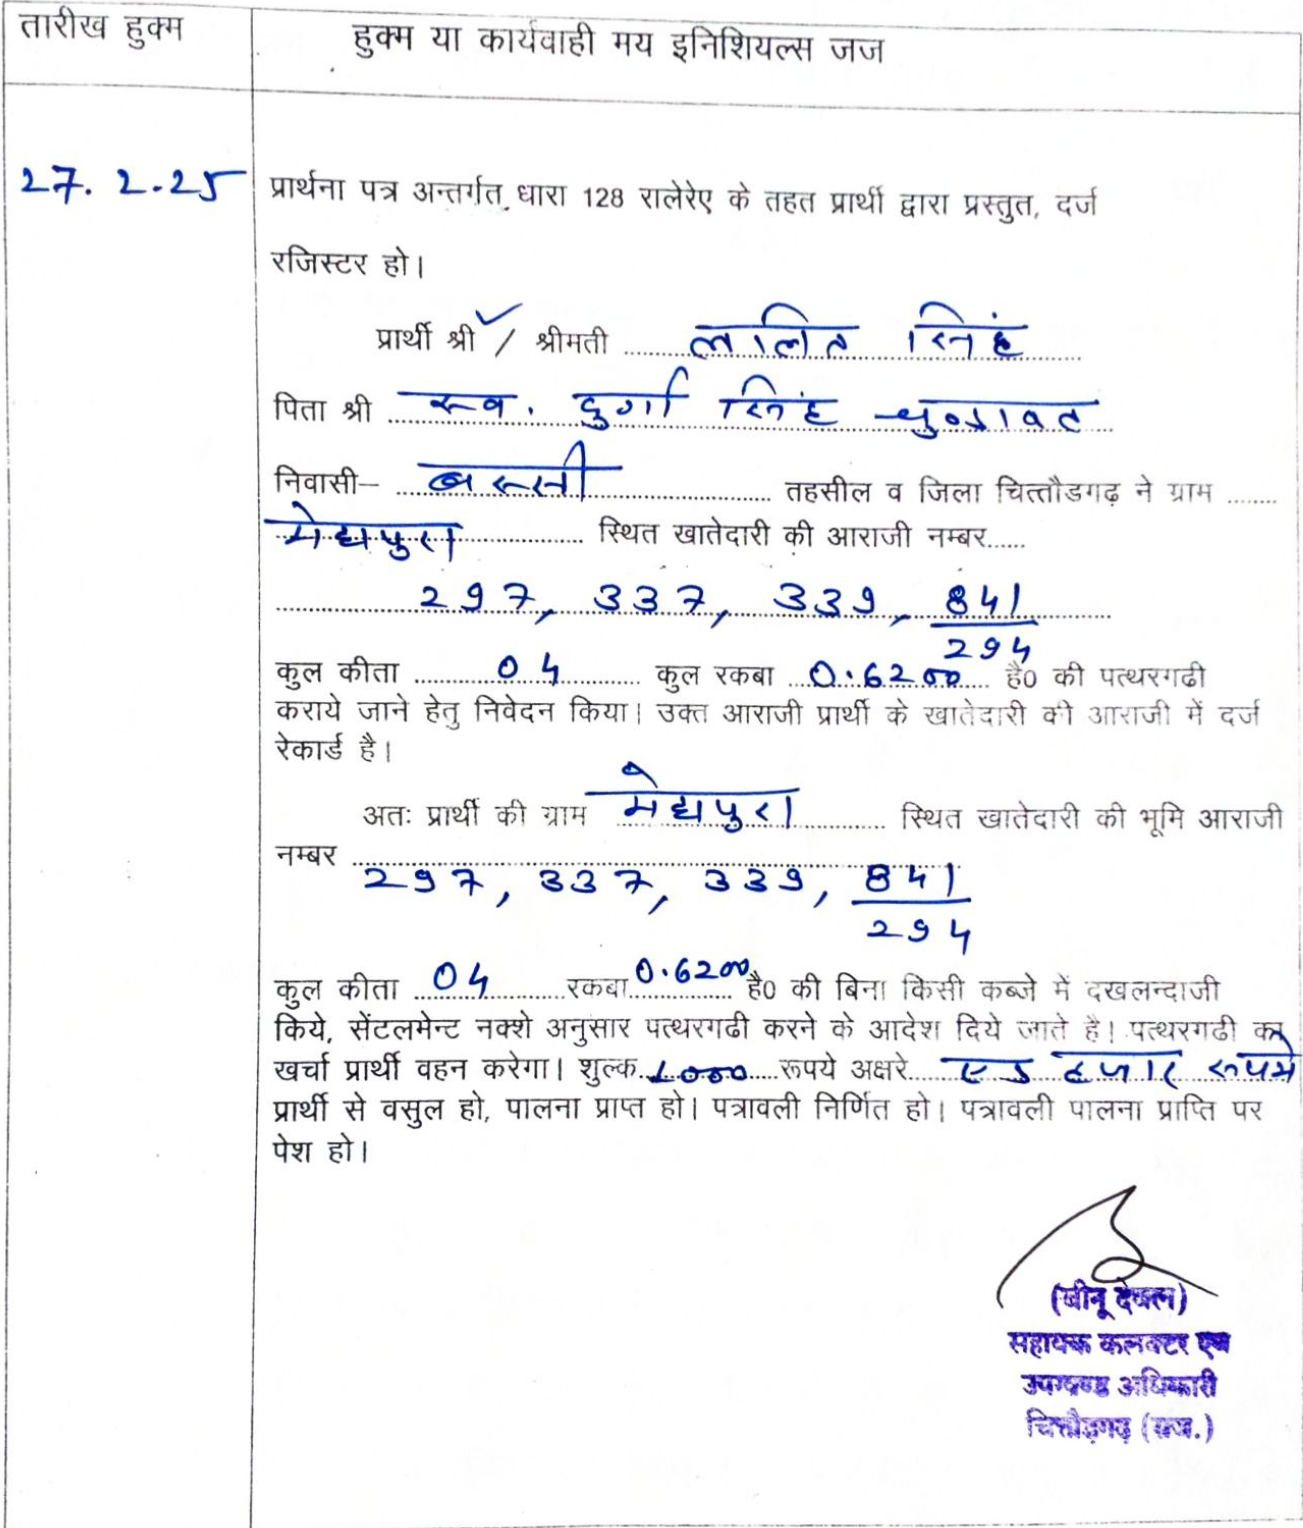 तारीख हुक्म
हुक्म या कार्यवाही मय इनिशियल्स जज
27.2.25
प्रार्थना पत्र अन्तर्गत धारा 128 रालेरेए के तहत प्रार्थी द्वारा प्रस्तुत, दर्ज
रजिस्टर हो।
प्रार्थी श्री ✓ / श्रीमती ..... ललित सिंह
पिता श्री ..... स्व. दुर्गा सिंह चुण्डावत
निवासी– ..... बस्सी ..... तहसील व जिला चित्तौडगढ़ ने ग्राम .....
मेघपुरा ..... स्थित खातेदारी की आराजी नम्बर.....
297, 337, 339, 841/294
कुल कीता ..... 04 ..... कुल रकबा ..... 0.6200 ..... है0 की पत्थरगढी
कराये जाने हेतु निवेदन किया। उक्त आराजी प्रार्थी के खातेदारी की आराजी में दर्ज
रेकार्ड है।
अतः प्रार्थी की ग्राम मेघपुरा ..... स्थित खातेदारी की भूमि आराजी
नम्बर .....
297, 337, 339, 841/294
कुल कीता ..... 04 ..... रकबा 0.6200 है0 की बिना किसी कब्जे में दखलन्दाजी
किये, सेंटलमेन्ट नक्शे अनुसार पत्थरगढी करने के आदेश दिये जाते है। पत्थरगढी का
खर्चा प्रार्थी वहन करेगा। शुल्क 1000 रूपये अक्षरे एक हजार रूपये
प्रार्थी से वसुल हो, पालना प्राप्त हो। पत्रावली निर्णित हो। पत्रावली पालना प्राप्ति पर
पेश हो।
(बीनू देवल)
सहायक कलक्टर एवं
उपखण्ड अधिकारी
चित्तौड़गढ़ (राज.)